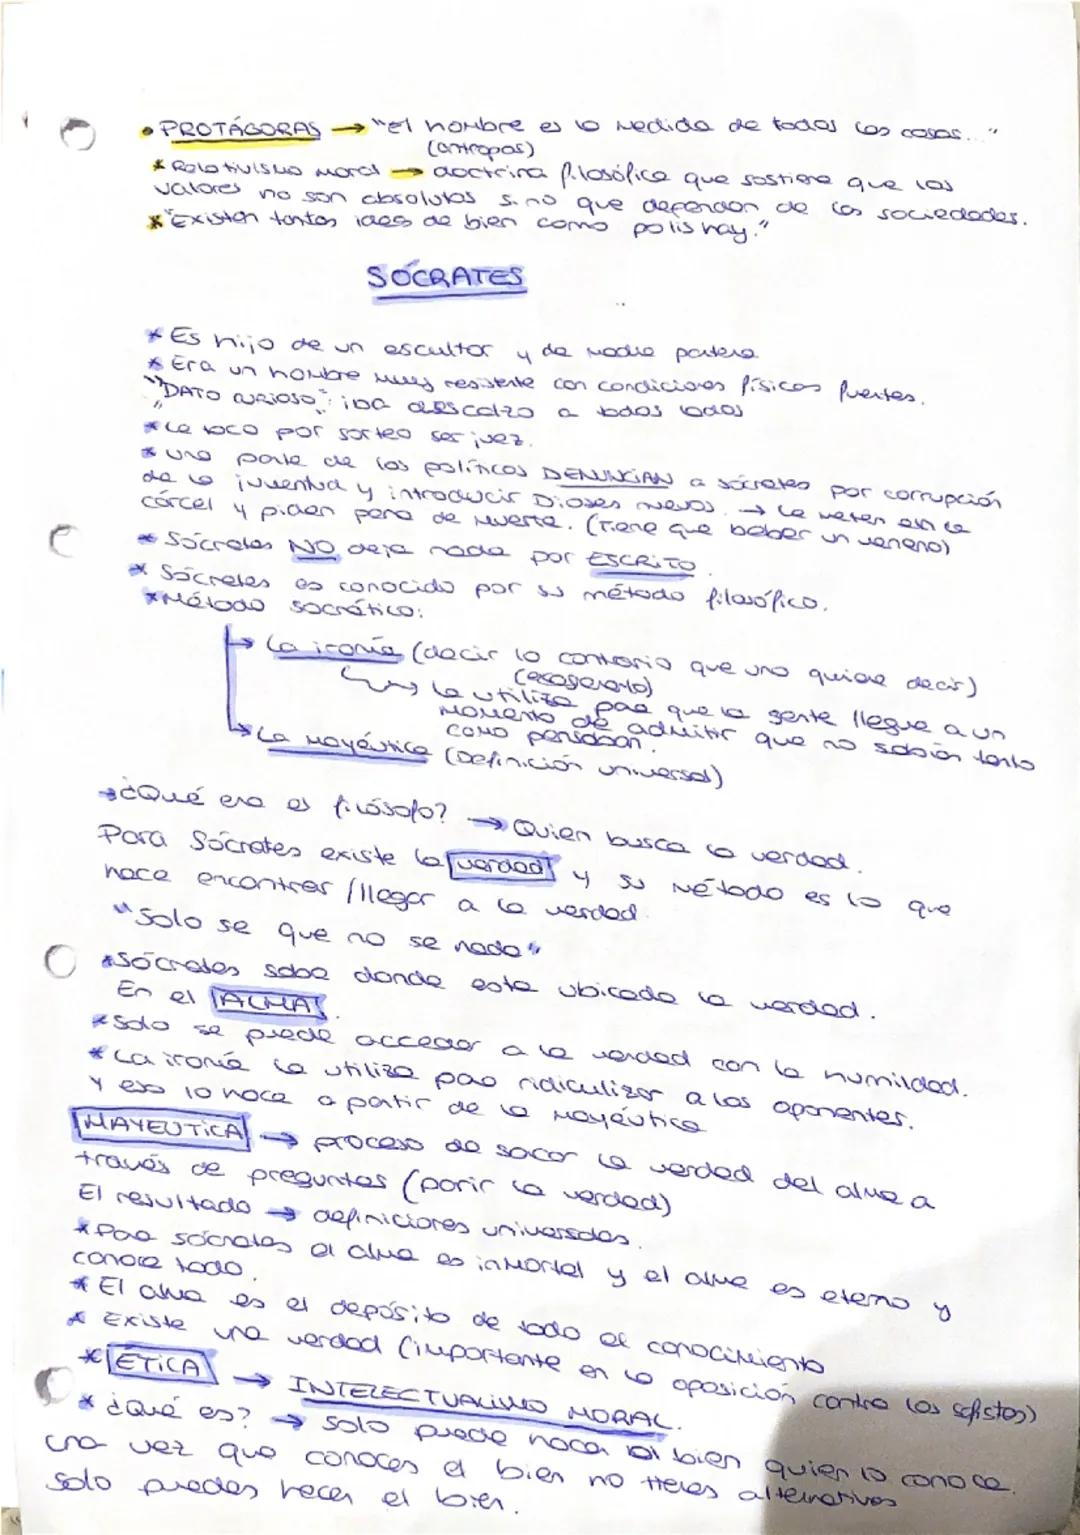 • PROTÁGORAS → "el hombre es la medida de todas las cosas..."
(antropos)
* Relativismo moral → doctrina filosófica que sostiene que los
valores no son absolutos sino que dependen de las sociedades.
* "Existen tantas ideas de bien como polis hay."
SÓCRATES
* Es hijo de un escultor y de madre partera
* Era un hombre muy resistente con condiciones físicas fuertes.
"DATO CURIOSO": iba descalzo a todos lados
* Le toco por sorteo ser juez.
* una parte de los políticos DENUNCIAN a sócrates por corrupción
de la juventud y introducir Dioses nuevos. → Le meten en la
cárcel y piden pena de muerte. (Tiene que beber un veneno)
* Sócrates NO deja nada por ESCRITO.
* Sócrates es conocido por su método filosófico.
* Método socrático:
→ La ironía (decir lo contrario que uno quiere decir)
(exagerarlo)
→ la utiliza para que la gente llegue a un
momento de admitir que no sabían tanto
como pensaban.
→ La mayéutica (Definición universal)
→ ¿Qué era el filósofo? → Quien busca la verdad.
Para Sócrates existe la verdad y su método es lo que
hace encontrar / llegar a la verdad
"Solo se que no se nada"
* Sócrates sabe donde esta ubicada la verdad.
En el ALMA.
* Solo se puede acceder a la verdad con la humildad.
* La ironía la utiliza para ridiculizar a los oponentes.
Y eso lo hace a partir de la mayéutica
MAYEUTICA → proceso de sacar la verdad del alma a
través de preguntas (parir la verdad)
El resultado → definiciones universales.
* Para sócrates el alma es inmortal y el alma es eterno y
conoce todo.
* El alma es el depósito de todo el conocimiento
* Existe una verdad (importante en la oposición contra los sofistas)
* ÉTICA → INTELECTUALISMO MORAL.
* ¿Qué es? → solo puede hacer el bien quien lo conoce.
una vez que conoces el bien no tienes alternativas
solo puedes hacer el bien.